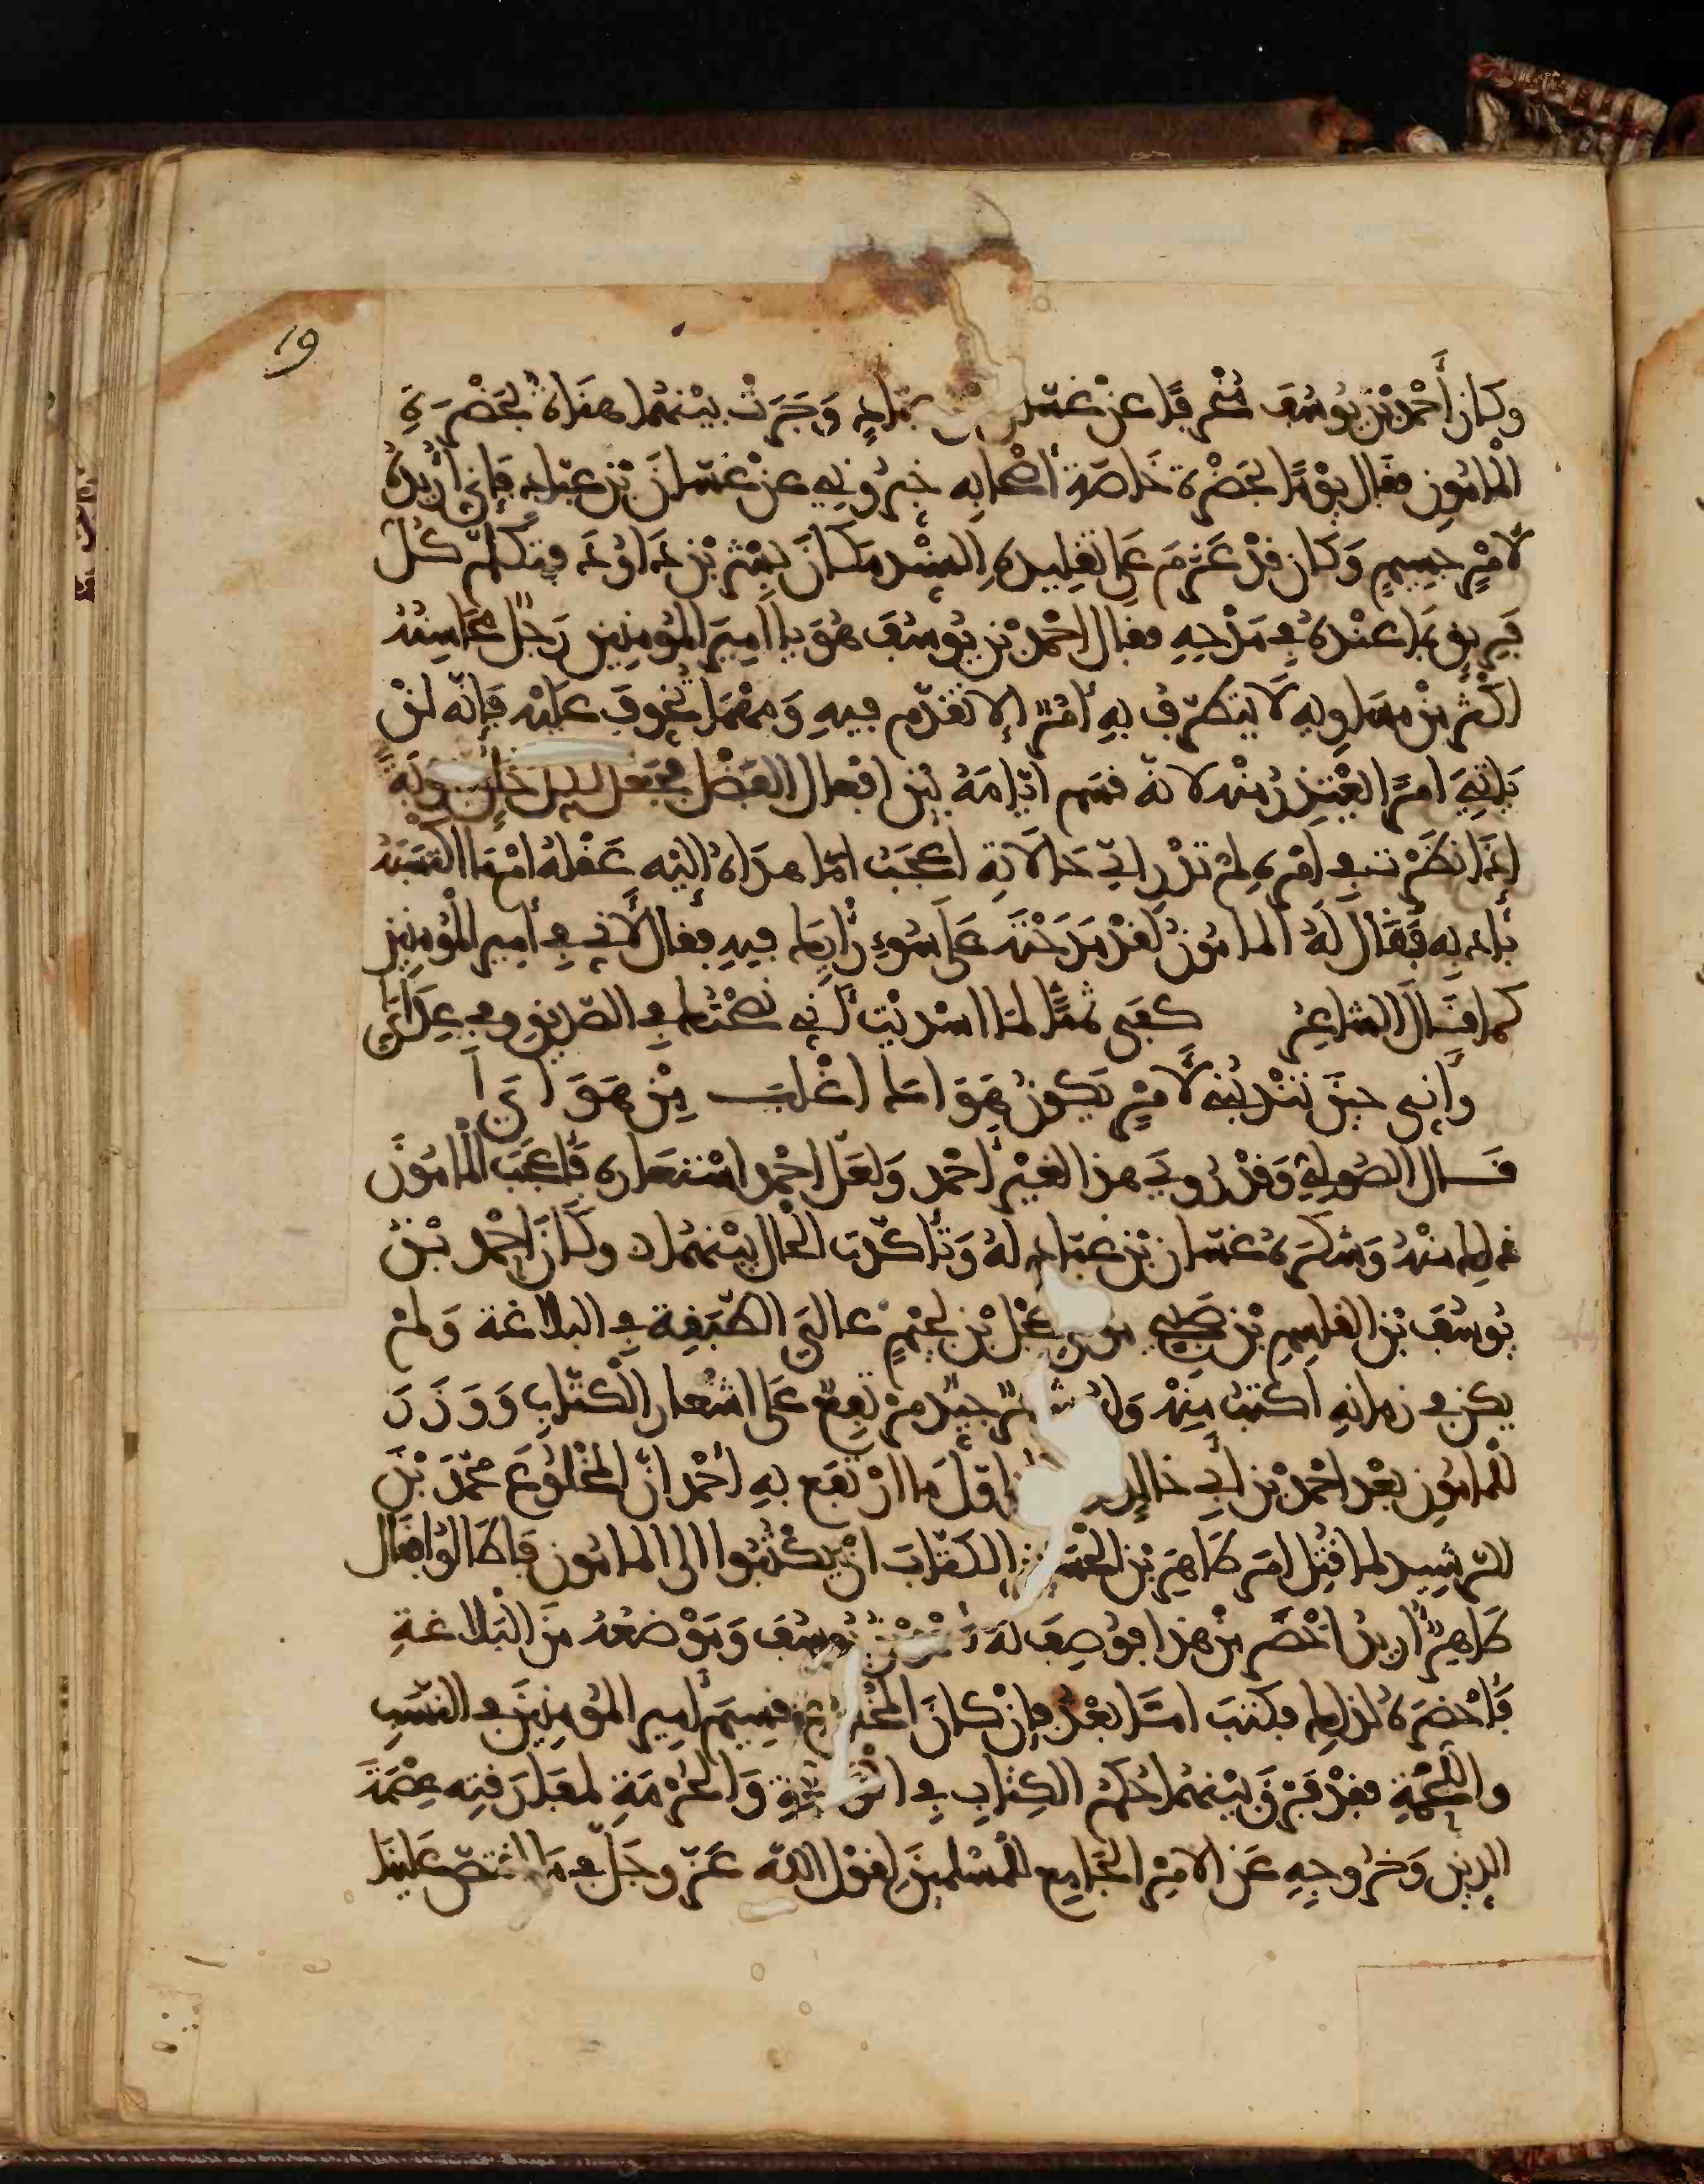 19
وكان أحمد بن يوسف منحرفا عن غسان بن عباد وجرت بينهما هناة بحضرة
المامون فقال يوما بحضرة خاصة أصحابه خبروني عن غسان بن عباد فإني أريده
لأمر جسيم وكان قد عزم على تقليده السند مكان بشر بن داود فتكلم كل
فريق بما عنده في مدحه فقال احمد بن يوسف هو يا امير المومنين رجل محاسنه
اكثر من مساويه لا يتطرف به أمر إلا تقدم فيه ومهما تخوف عليه فإنه لن
ياتي امرا يعتذر منه لانه قسم ايامه بين افعال الفضل فجعل لكل خلق نوبة
اذا نظرت في امره لم تدر اي حالاته اعجب اما هداه اليه عقله ام ما اكتسبه
بأدبه فقال له المامون لقد مدحته على سوء رأيك فيه فقال لأني في أمير المومنين
كما قال الشاعر كفى ثمنا لما اسديت أني نصحتك في الصديق وفي عداي
وأني حين تندبني لأمر يكون هواك اغلب من هواي
قال الصولي وقد روي هذا لغير أحمد ولعل احمد استعاره فأعجب المامون
ذلك منه وشكره غسان بن عباد له وتأكدت الحال بينهما وكان احمد بن
يوسف بن القسم بن صبيح عجل بن لجيم عالي الطبقة في البلاغة ولم
يكن في زمانه اكتب منه وله شعر جيد مرتفع على اشعار الكتاب ووزر
للمامون بعد احمد بن أبي خالد اول ما ارتفع به أحمد ان المخلوع محمد بن
الرشيد لما قتل امر طاهر بن الحسين الكتاب ان يكتبوا الى المامون فاطالوا فقال
طاهر أريد اخصر من هذا فوصف له احمد بن يوسف وموضعه من البلاغة
فأحضره لذلك فكتب اما بعد فإن كان المخلوع قسيم أمير المومنين في النسب
واللحمة فقد فرق بينهما حكم الكتاب في الولاية والحرمة لمفارقته عصمة
الدين وخروجه عن الامر الجامع للمسلمين لقول الله عز وجل في ما اقتص علينا